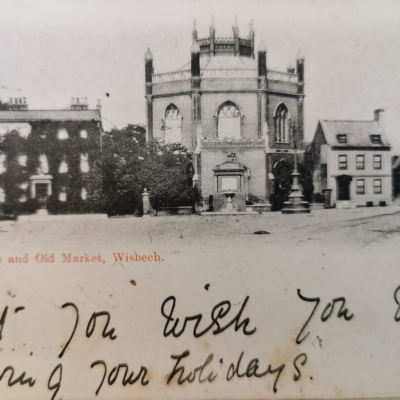 and Old Market, Wisbech.
you wish you
your holidays.